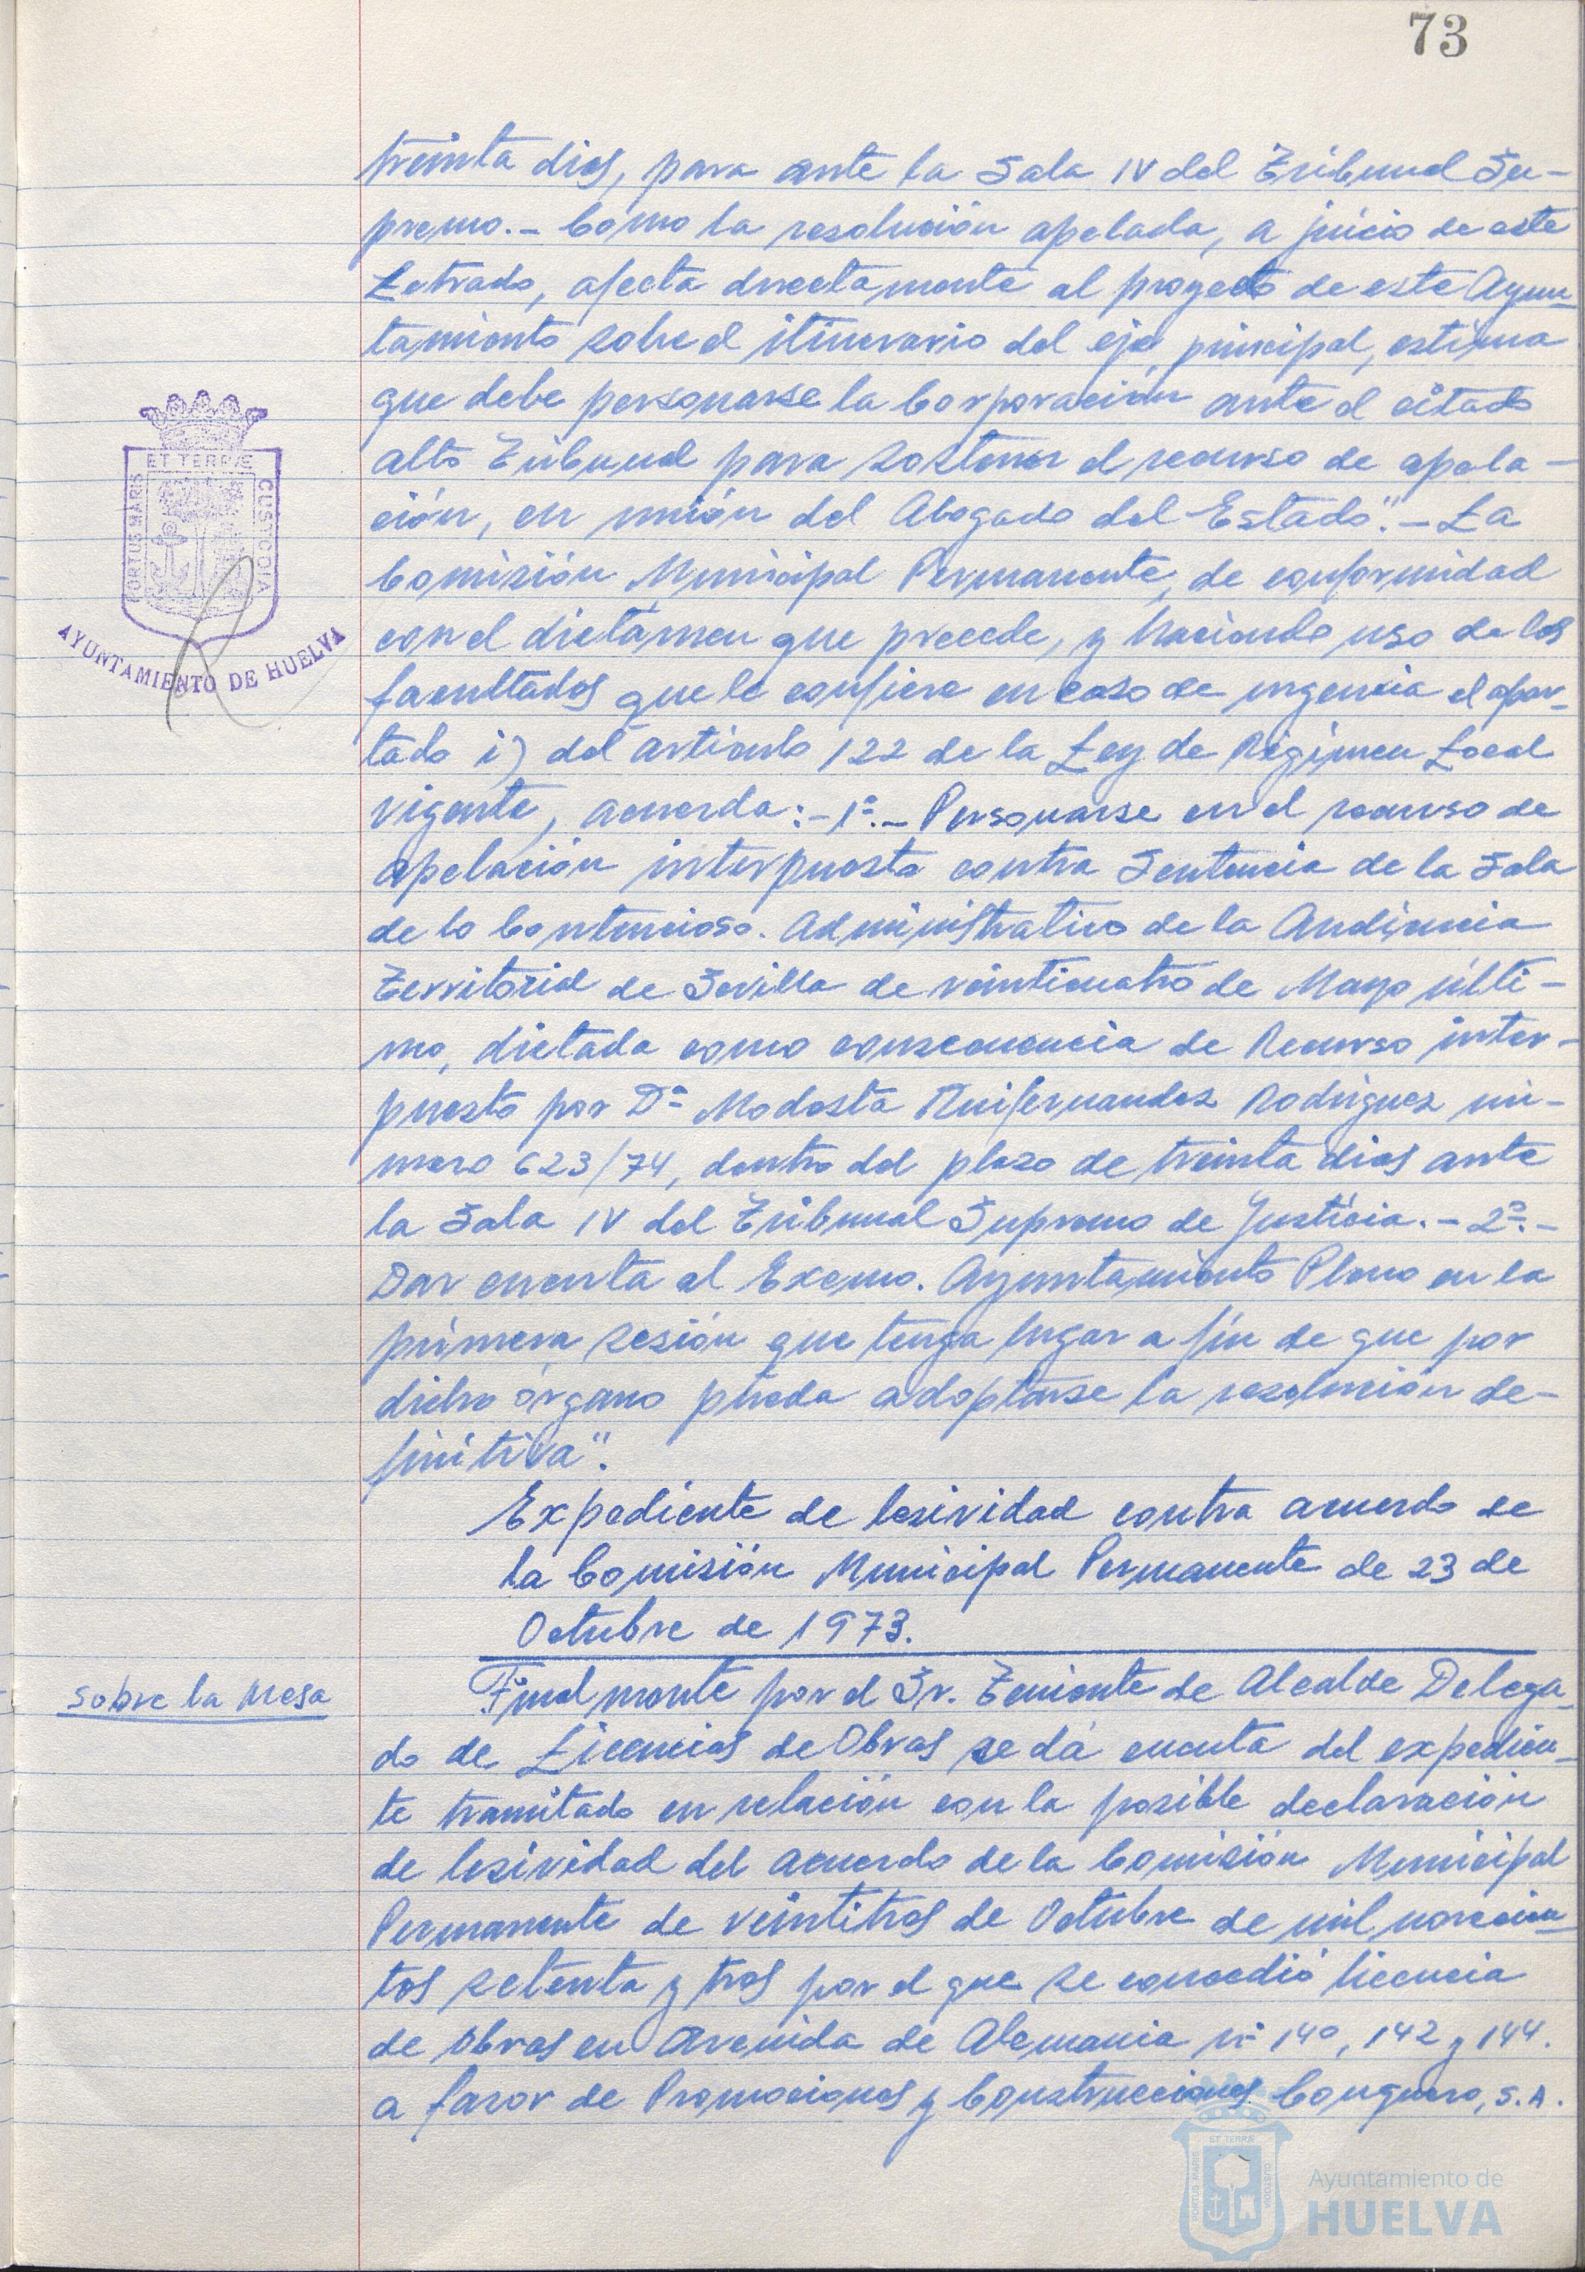 73
treinta dias, para ante la Sala IV del Tribunal Su-
premo.- Como la resolución apelada, a juicio de este
Letrado, afecta directamente al proyecto de este Ayun-
tamiento sobre el itinerario del eje principal, estima
que debe personarse la Corporación ante el citado
alto Tribunal para sostener el recurso de apela-
ción, en unión del Abogado del Estado".- La
Comisión Municipal Permanente, de conformidad
con el dictámen que precede, y haciendo uso de las
facultades que le confiere en caso de urgencia el apar-
tado i) del artículo 122 de la Ley de Régimen Local
vigente, acuerda:- 1º.- Personarse en el recurso de
apelación interpuesto contra Sentencia de la Sala
de lo Contencioso-Administrativo de la Audiencia
Territorial de Sevilla de veinticuatro de Mayo últi-
mo, dictada como consecuencia de Recurso inter-
puesto por Dª Modesta Ruifernandez Rodriguez nú-
mero 623/74, dentro del plazo de treinta dias ante
la Sala IV del Tribunal Supremo de Justicia.- 2º.-
Dar cuenta al Excmo. Ayuntamiento Pleno en la
primera sesión que tenga lugar a fin de que por
dicho órgano pueda adoptarse la resolución de-
finitiva".
Expediente de lesividad contra acuerdo de
la Comisión Municipal Permanente de 23 de
Octubre de 1973.
Sobre la Mesa
Finalmente por el Sr. Teniente de Alcalde Delega-
do de Licencias de Obras se dá cuenta del expedien-
te tramitado en relación con la posible declaración
de lesividad del acuerdo de la Comisión Municipal
Permanente de veintitres de Octubre de mil novecien-
tos setenta y tres por el que se concedió licencia
de obras en Avenida de Alemania nº 140, 142 y 144.
a favor de Promociones y Construcciones Conguero, S.A.
PORTUS MARIS ET TERRÆ CUSTODIA
AYUNTAMIENTO DE HUELVA
PORTUS MARIS ET TERRÆ CUSTODIA
Ayuntamiento de
HUELVA